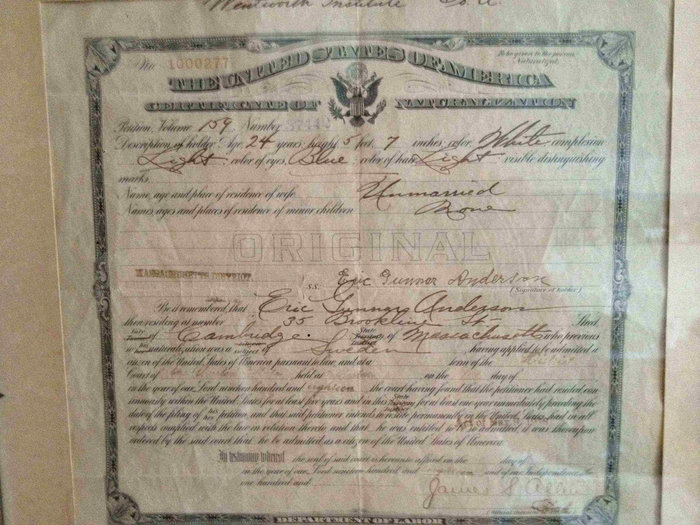 Wentworth Institute
To be given to the person Naturalized.
No. 1000277
THE UNITED STATES OF AMERICA
CERTIFICATE OF NATURALIZATION
Petition, Volume 159 Number
Description of holder: Age, 24 years; height, 5 feet, 7 inches; color, White; complexion,
Light; color of eyes, Blue; color of hair, Light; visible distinguishing
marks,
Name, age and place of residence of wife, Unmarried
Names, ages and places of residence of minor children, None
ORIGINAL
MASSACHUSETTS DISTRICT,
S.S. Eric Gunnar Anderson
(Signature of holder)
Be it remembered that Eric Gunnar Anderson
then residing at number 35 Brookline St. Street
City of Cambridge, State of Massachusetts who previous
to naturalization was a subject of Sweden, having applied to be admitted a
citizen of the United States of America pursuant to law, and at a term of the
Court of held at on the day of
in the year of our Lord nineteen hundred and eighteen the court having found that the petitioner had resided con-
tinuously within the United States for at least five years and in this State for at least one year immediately preceding the
date of the filing of his petition, and that said petitioner intends to reside permanently in the United States, had in all
respects complied with the law in relation thereto, and that he was entitled to be so admitted, it was thereupon
ordered by the said court that he be admitted as a citizen of the United States of America.
In testimony whereof the seal of said court is hereunto affixed on the day of
in the year of our Lord nineteen hundred and and of our Independence the
one hundred and
James S. Allen
DEPARTMENT OF LABOR